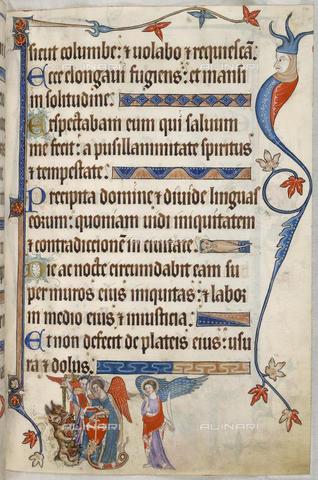 sicut columbe: ⁊ uolabo ⁊ requiescā.
Ecce elongaui fugiens: et mansi
in solitudine.
Expectabam eum qui saluum
me fecit: a pusillanimitate spiritus
⁊ tempestate.
Precipita domine ⁊ diuide linguas
eorum: quoniam uidi iniquitatem
⁊ contradiccionem in ciuitate.
Die ac nocte circumdabit eam su
per muros eius iniquitas: ⁊ labor
in medio eius ⁊ iniusticia.
Et non defecit de plateis eius: usu
ra ⁊ dolus.
ALINARI
ALINARI
ALINARI
ALINARI